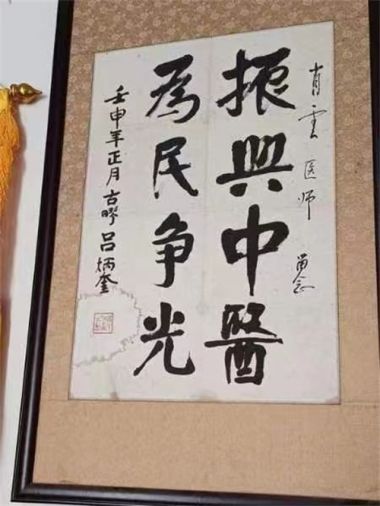 肖雲医师 留念
振興中醫
為民争光
壬申年正月古疁吕炳奎